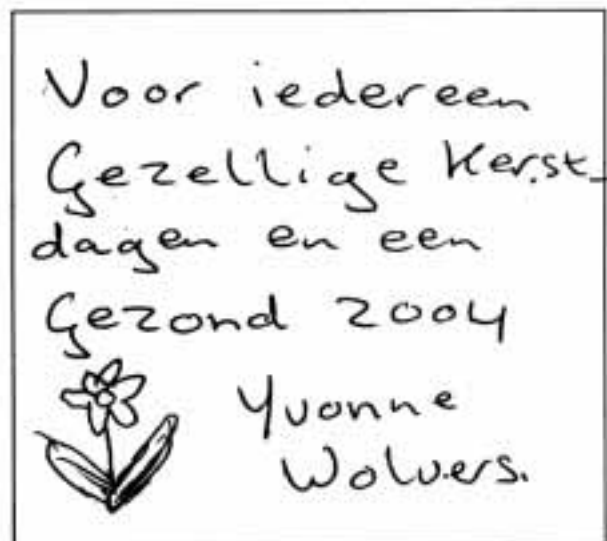 Voor iedereen
Gezellige Kerst-
dagen en een
Gezond 2004
Yvonne
Wolvers.